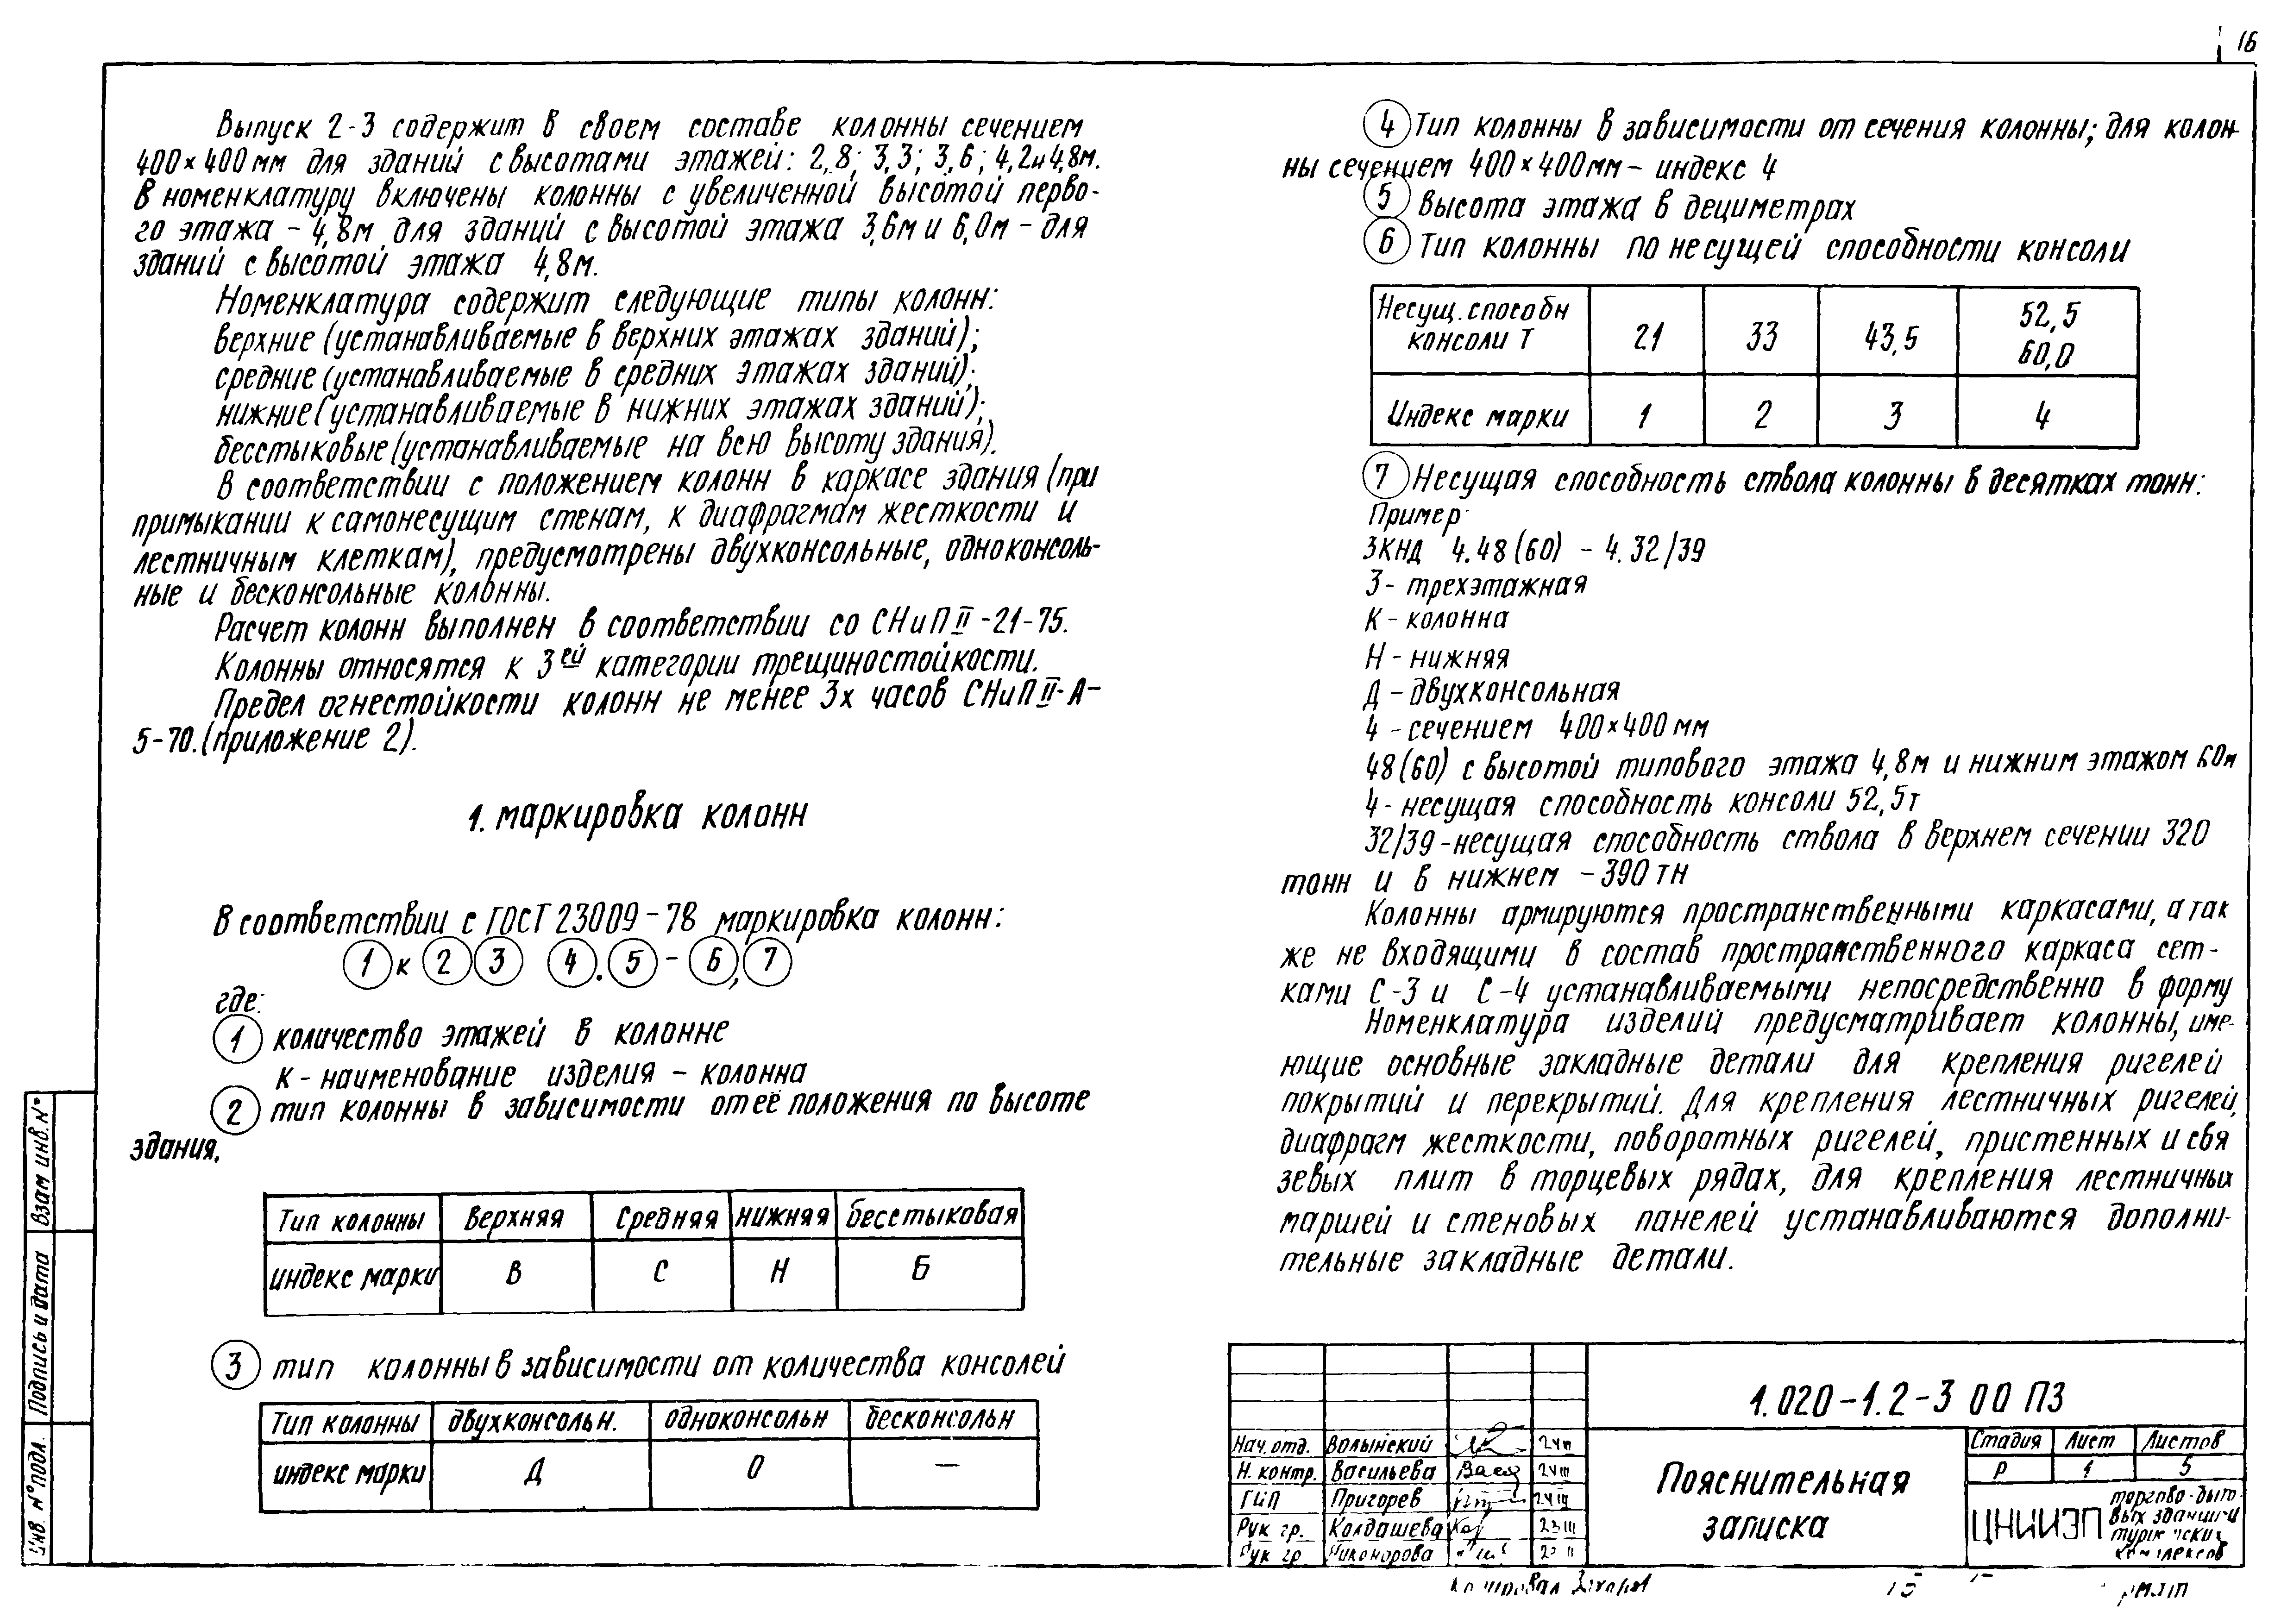 16
Выпуск 2-3 содержит в своем составе колонны сечением
400×400 мм для зданий с высотами этажей: 2,8; 3,3; 3,6; 4,2 и 4,8м.
В номенклатуру включены колонны с увеличенной высотой перво-
го этажа - 4,8м для зданий с высотой этажа 3,6м и 6,0м - для
зданий с высотой этажа 4,8м.
Номенклатура содержит следующие типы колонн:
верхние (устанавливаемые в верхних этажах зданий);
средние (устанавливаемые в средних этажах зданий);
нижние (устанавливаемые в нижних этажах зданий);
бесстыковые (устанавливаемые на всю высоту здания).
В соответствии с положением колонн в каркасе здания (при
примыкании к самонесущим стенам, к диафрагмам жесткости и
лестничным клеткам), предусмотрены двухконсольные, одноконсоль-
ные и бесконсольные колонны.
Расчет колонн выполнен в соответствии со СНиП II-21-75.
Колонны относятся к 3ей категории трещиностойкости.
Предел огнестойкости колонн не менее 3х часов СНиП II-А-
5-70. (приложение 2).
1. маркировка колонн
В соответствии с ГОСТ 23009-78 маркировка колонн:
1 к 2 3 4 . 5 - 6 , 7
где:
1 количество этажей в колонне
К - наименование изделия - колонна
2 тип колонны в зависимости от её положения по высоте
здания.
Тип колонны верхняя средняя нижняя бесстыковая
индекс марки В С Н Б
3 тип колонны в зависимости от количества консолей
Тип колонны двухконсольн. одноконсольн бесконсольн
индекс марки Д О —
4 Тип колонны в зависимости от сечения колонны; для колон-
ны сечением 400×400мм - индекс 4
5 Высота этажа в дециметрах
6 Тип колонны по несущей способности консоли
Несущ. способн консоли Т 21 33 43,5 52,5 60,0
Индекс марки 1 2 3 4
7 Несущая способность ствола колонны в десятках тонн:
Пример:
3КНД 4.48(60) - 4.32/39
3 - трехэтажная
К - колонна
Н - нижняя
Д - двухконсольная
4 - сечением 400×400 мм
48(60) с высотой типового этажа 4,8м и нижним этажом 60м
4 - несущая способность консоли 52,5т
32/39 - несущая способность ствола в верхнем сечении 320
тонн и в нижнем - 390 тн
Колонны армируются пространственными каркасами, а так
же не входящими в состав пространственного каркаса сет-
ками С-3 и С-4 устанавливаемыми непосредственно в форму
Номенклатура изделий предусматривает колонны, име-
ющие основные закладные детали для крепления ригелей
покрытий и перекрытий. Для крепления лестничных ригелей,
диафрагм жесткости, поворотных ригелей, пристенных и свя
зевых плит в торцевых рядах, для крепления лестничных
маршей и стеновых панелей устанавливаются дополни-
тельные закладные детали.
1.020-1.2-3 00 ПЗ
Нач. отд. Волынский
Н. контр. Васильева
ГИП Пригорев
Рук гр. Колдашева
Рук гр Никонорова
Пояснительная
записка
Стадия Лист Листов
Р 1 5
ЦНИИЭП
торгово-быто-
вых зданий и
комплексов
Взам инв. №
Подпись и дата
Инв. № подл.